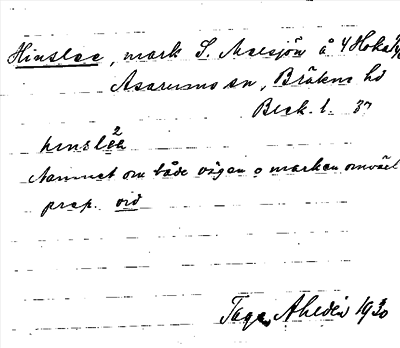 Hinslee, mark S. Miesjön å 4 Hoka
Asarums sn, Bräkne hd
Bleck. l. 37
hinslē2
Namnet om både vägen o marken omväxl
prep. vid
Tage Ahldén 1930